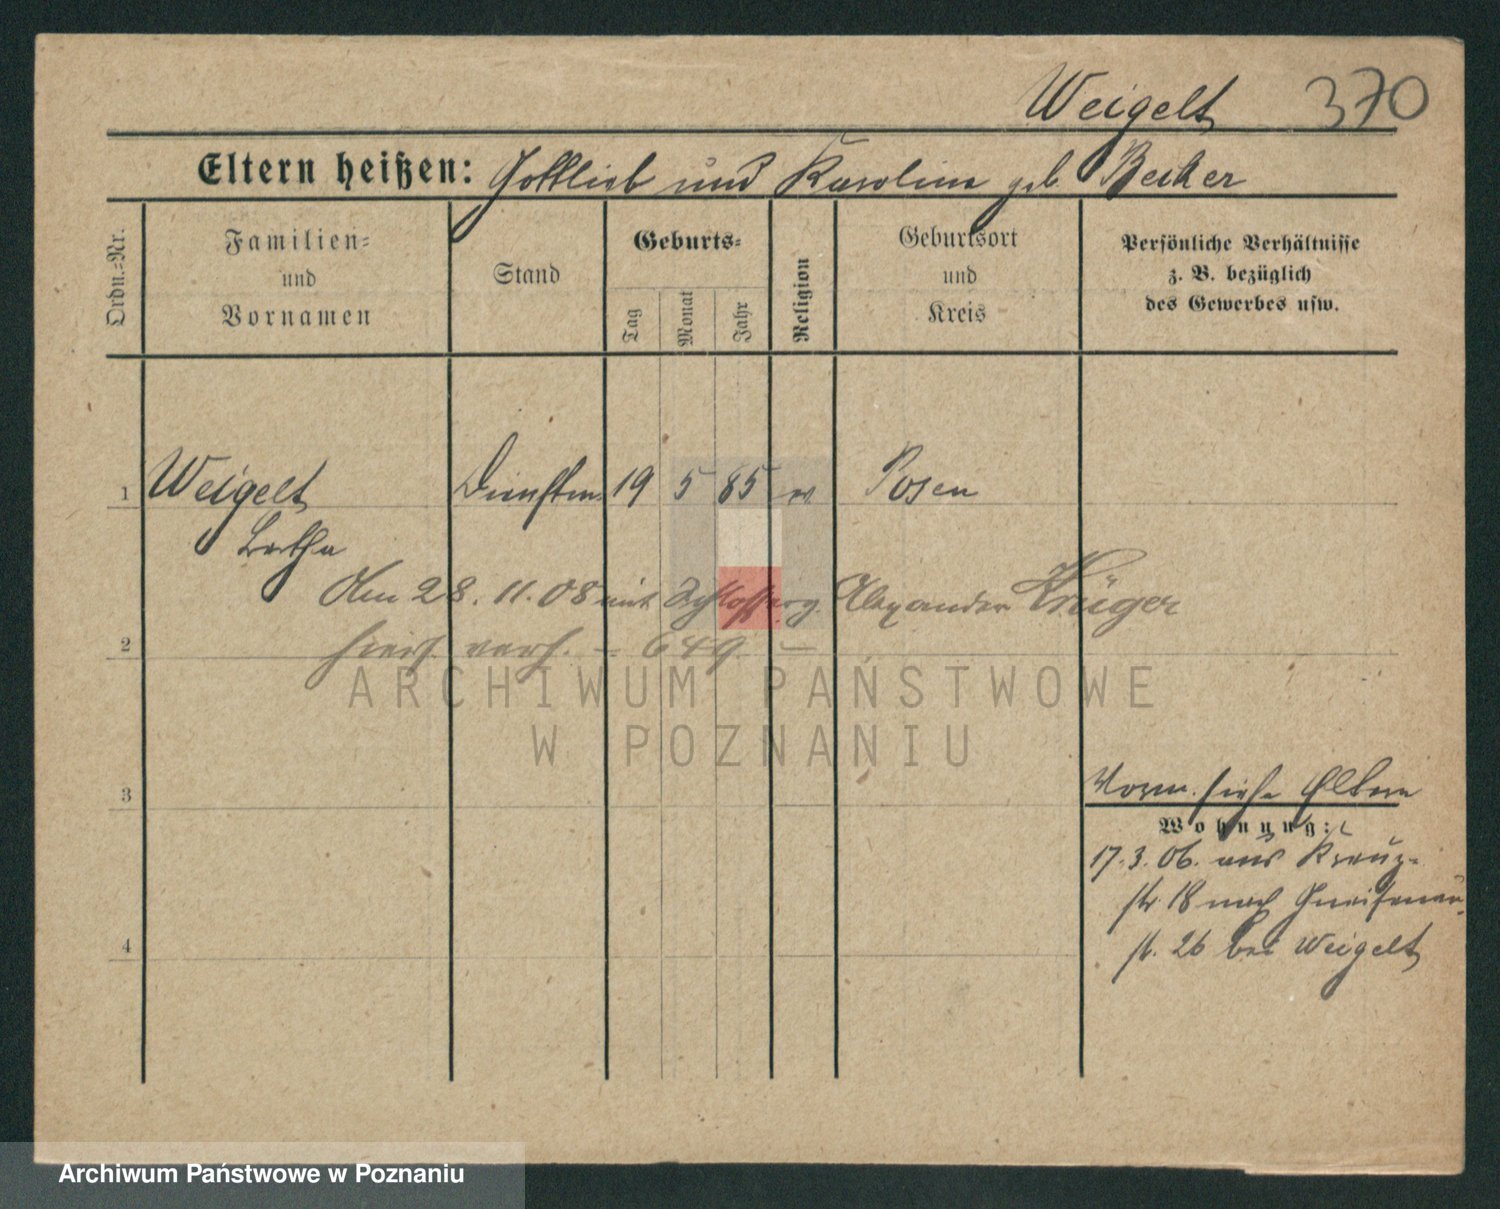 Weigelt 370
Eltern heißen: Gottlieb und Karoline geb. Becker
Ordn.-Nr.
Familien-
und
Vornamen
Stand
Geburts-
Tag
Monat
Jahr
Religion
Geburtsort
und
Kreis
Persönliche Verhältnisse
z. B. bezüglich
des Gewerbes usw.
1 Weigelt 19 5 85 Posen
Bertha
Am 28. 11. 08 mit Alexander Krüger
2 hiers. verh. - 649 -
ARCHIWUM PAŃSTWOWE
W POZNANIU
3 Vorm. siehe Eltern
Wohnung:
17.3.06. aus Kreuz-
str. 18 nach Gneisenau-
4 st. 26 bei Weigelt
Archiwum Państwowe w Poznaniu